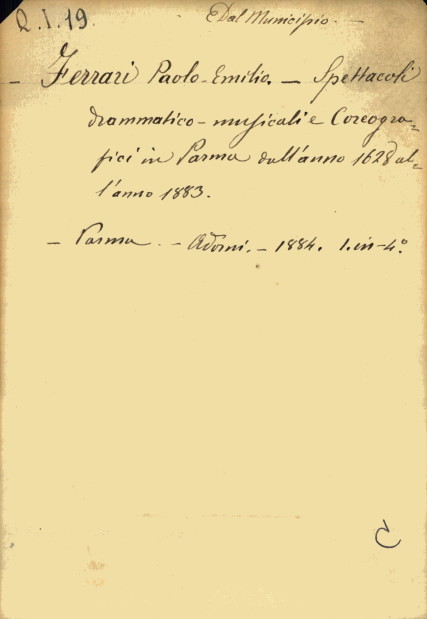 Q.I.19.
Dal Municipio. —
— Ferrari Paolo-Emilio. — Spettacoli
drammatico-musicali e Coreogra-
fici in Parma dall'anno 1628 al-
l'anno 1883.
— Parma. — Adorni. — 1884. 1. in-4°.